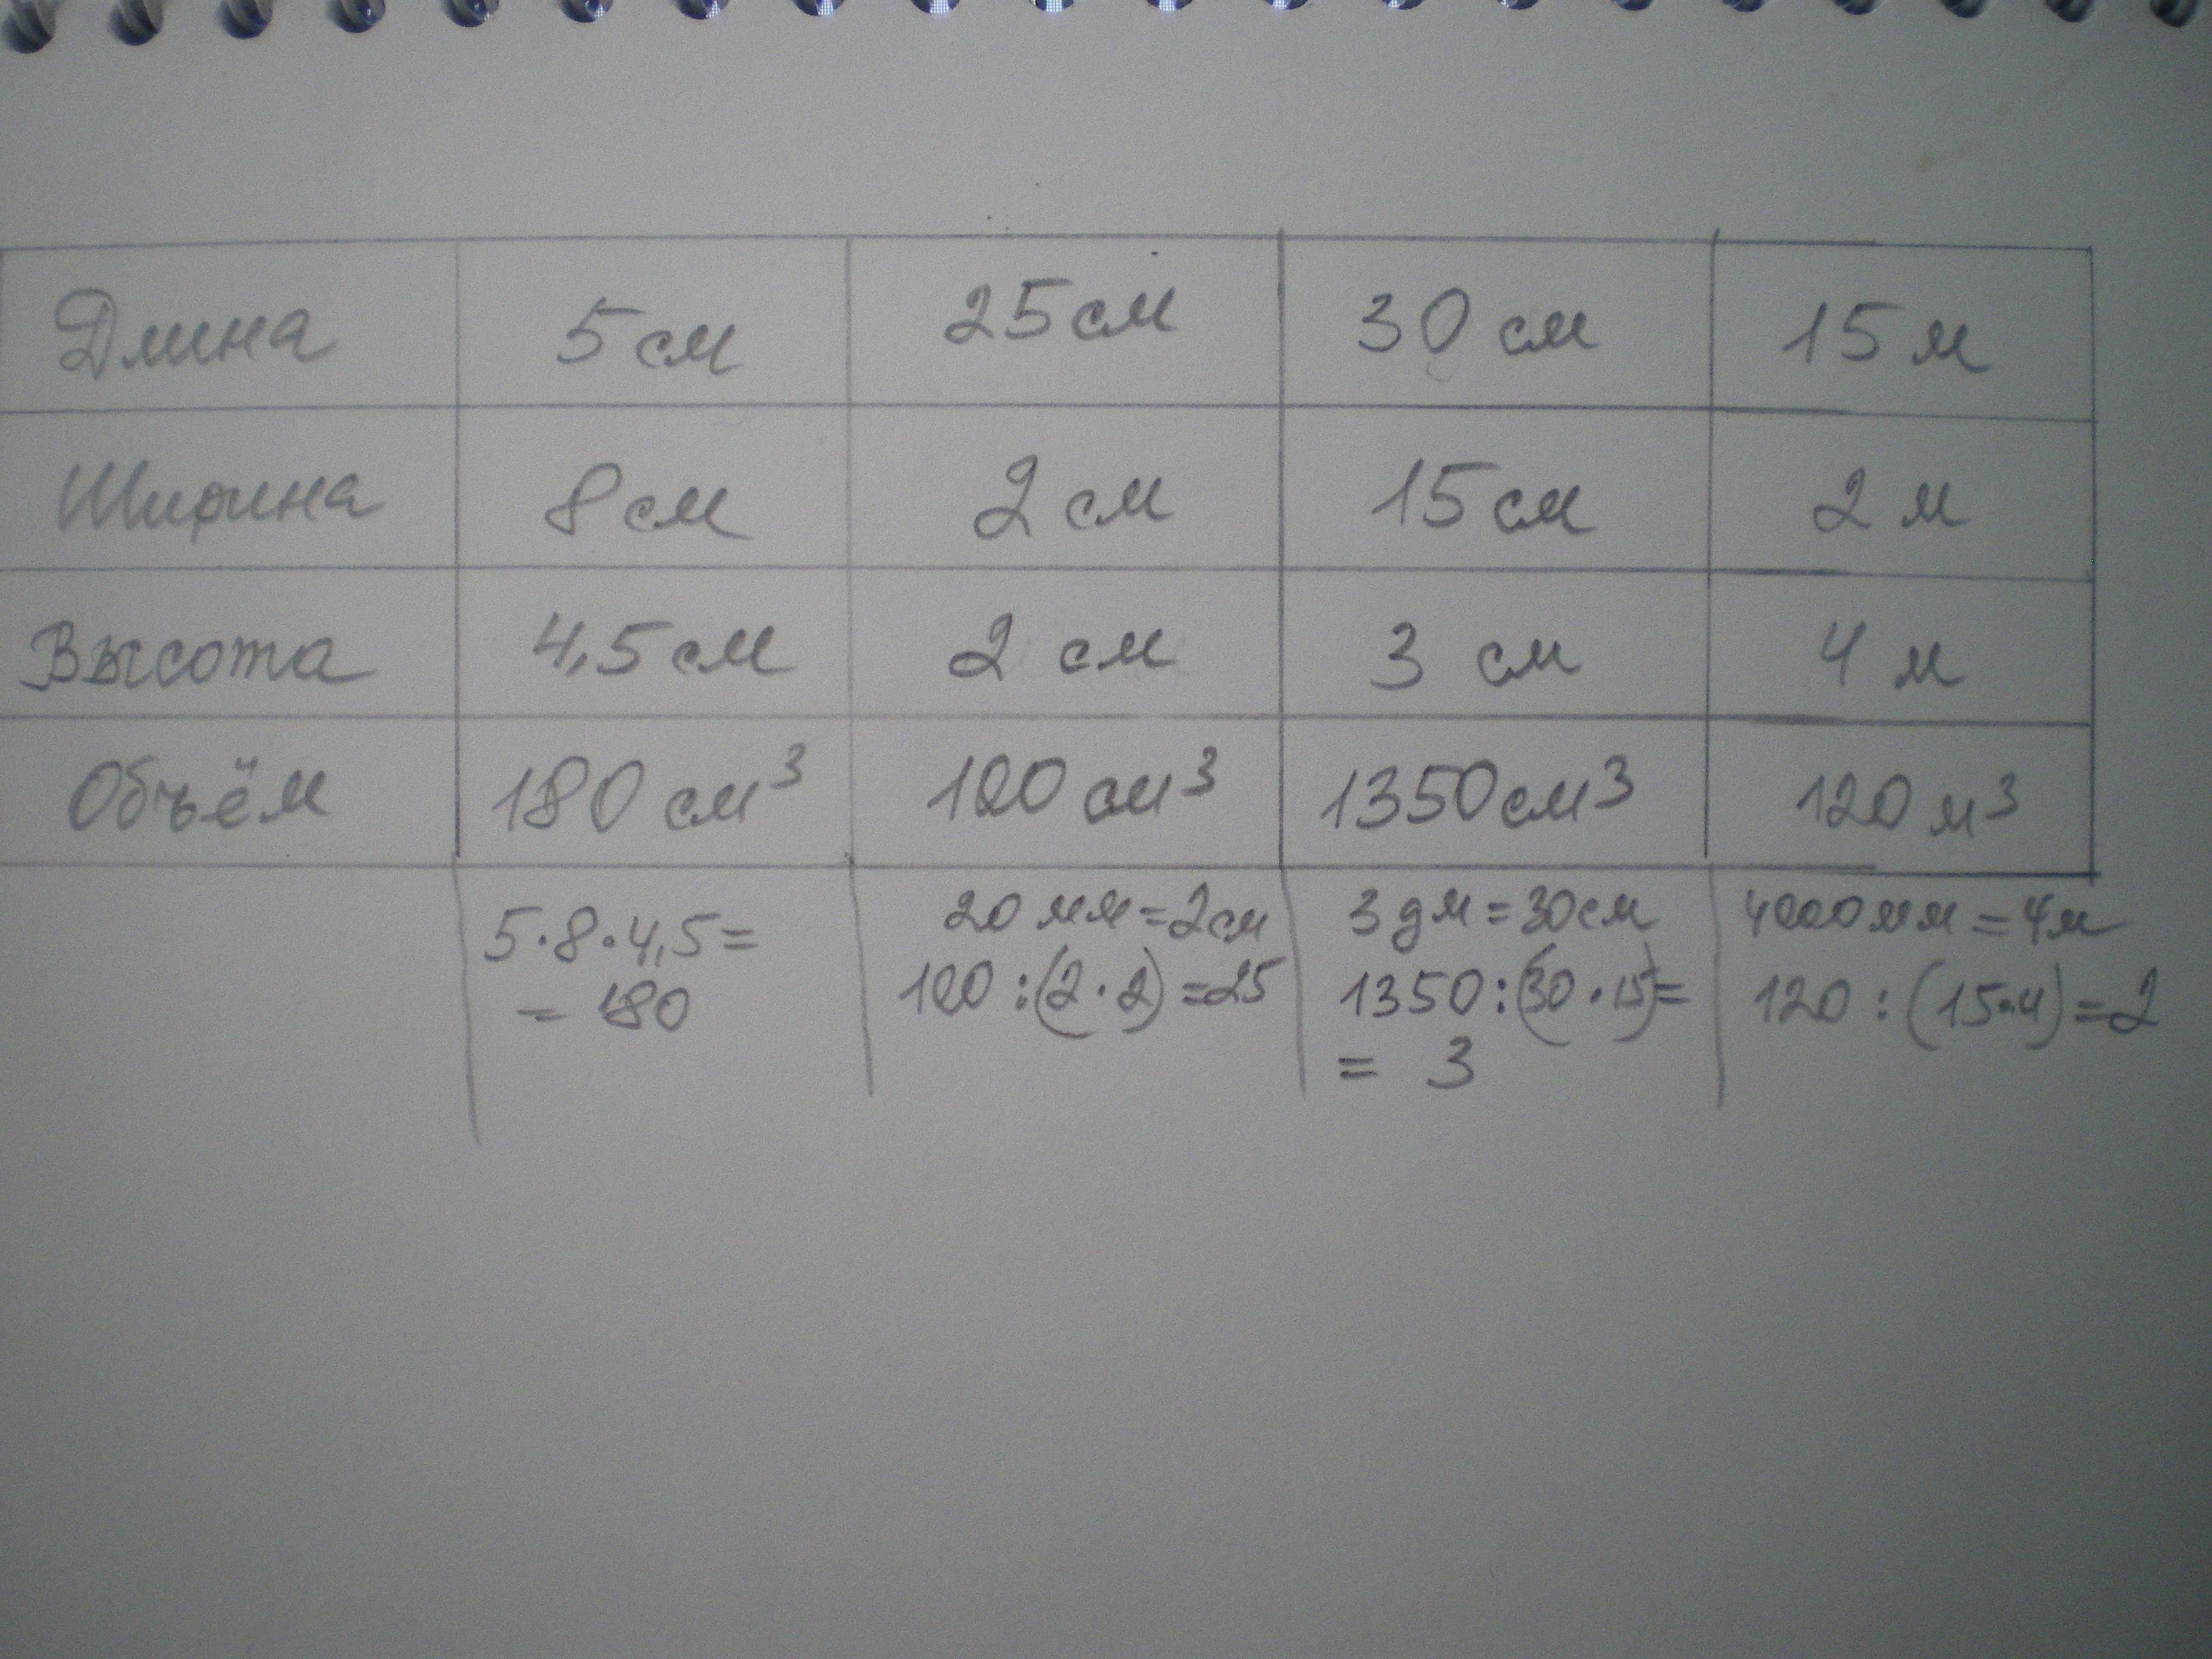 Длина 5 см 25 см 30 см 15 м
Ширина 8 см 2 см 15 см 2 м
Высота 4,5 см 2 см 3 см 4 м
Объём 180 см³ 100 см³ 1350 см³ 120 м³
5·8·4,5=
= 180
20 мм = 2 см
100 : (2·2) = 25
3 дм = 30 см
1350 : (30·15) =
= 3
4000 мм = 4 м
120 : (15·4) = 2